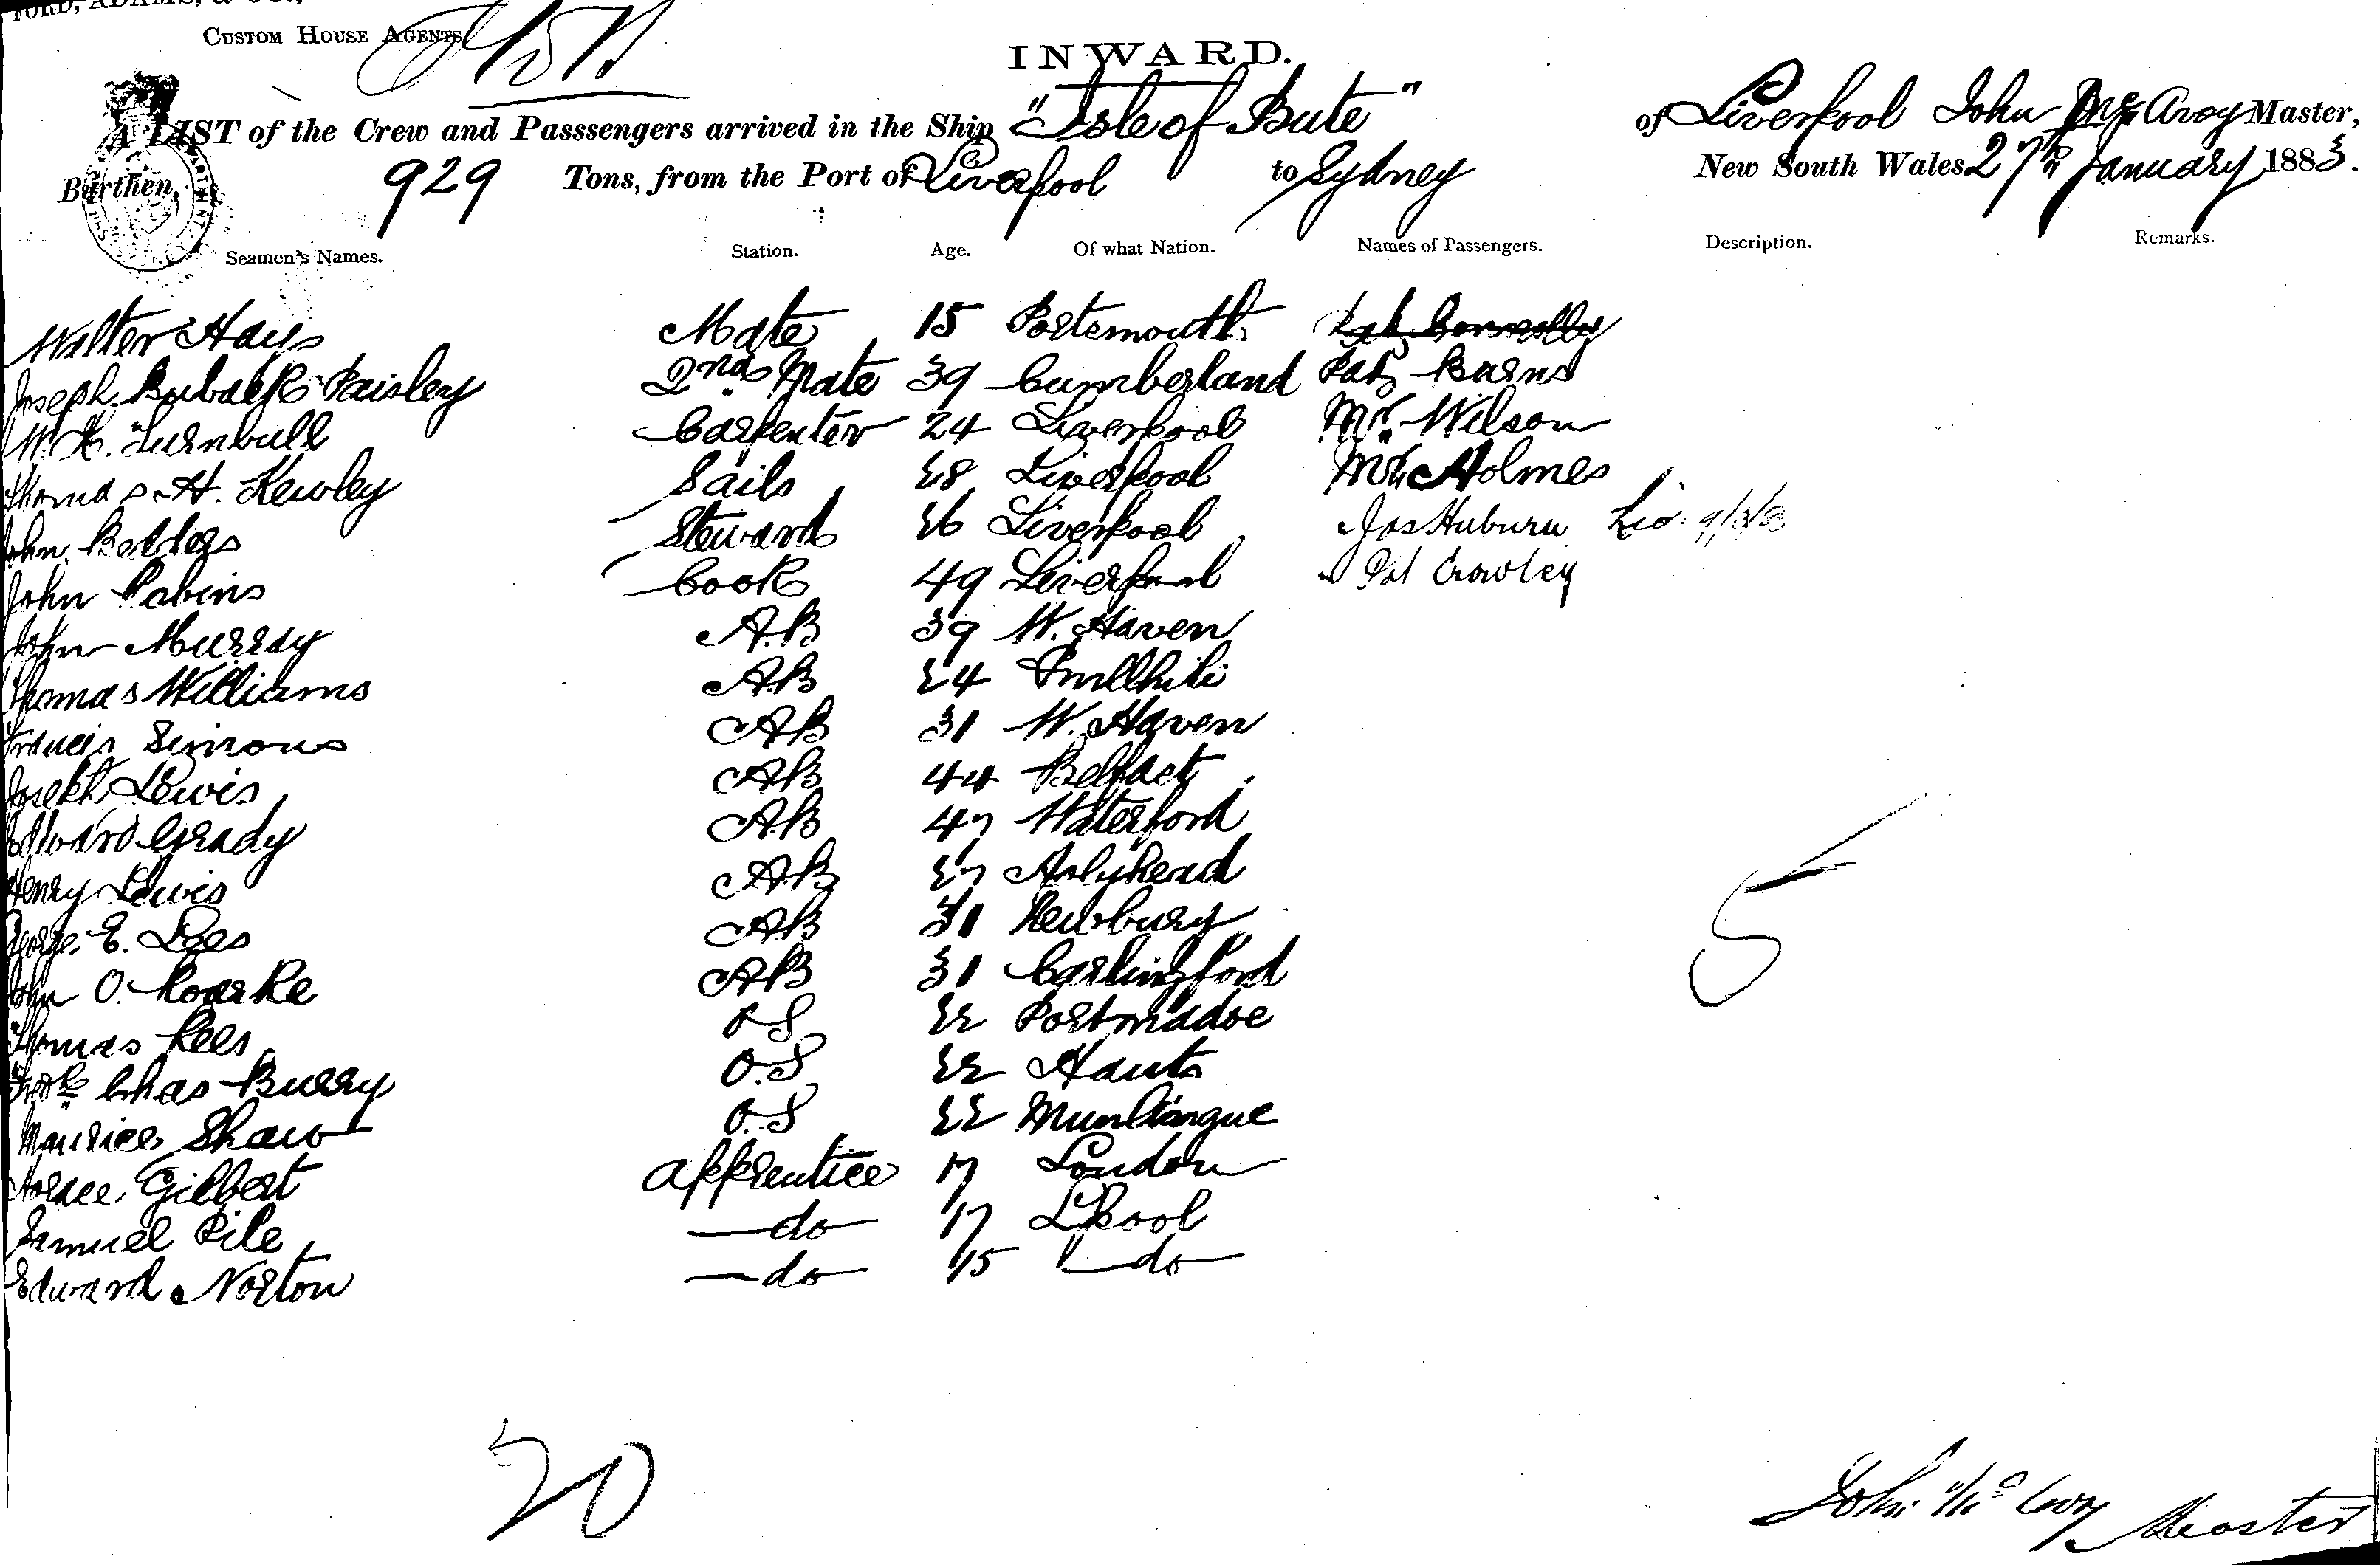 FORD, ADAMS, & CO.,
CUSTOM HOUSE AGENTS
INWARD.
A LIST of the Crew and Passsengers arrived in the Ship "Isle of Bute" of Liverpool John McAvoy Master,
Burthen, 929 Tons, from the Port of Liverpool to Sydney New South Wales 27th January 1883.
Seamen's Names. Station. Age. Of what Nation. Names of Passengers. Description. Remarks.
Walter Hays Mate 15 Portsmouth
Joseph Paisley 2nd Mate 39 Cumberland Pat Burns
W. H. Turnbull Carpenter 24 Liverpool Mr. Wilson
Thomas H. Kewley Sails 28 Liverpool Mr Holmes
John Steward 26 Liverpool Jas Huburn
John Rabins Cook 49 Liverpool Pat Crowley
John Murray A.B 39 W. Haven
Thomas Williams A.B 24 Pwllhili
Francis Simons AB 31 W. Haven
Joseph Lewis AB 44 Belfact
Edward Grady A.B 47 Waterford
Henry Lewis A.B 27 Holyhead
George E. Lees AB 31 Newbury
John O. Roarke AB 31 Carlingford
Thomas Rees O S 22 Portmadoc
Fredk Chas Burry O.S 22 Hants
Maurice Shaw O.S 22
Horace Gilbert apprentice 17 London
Samuel Pile do 17 L'Pool
Edward Norton do 15 do
5
20
John McAvoy Master